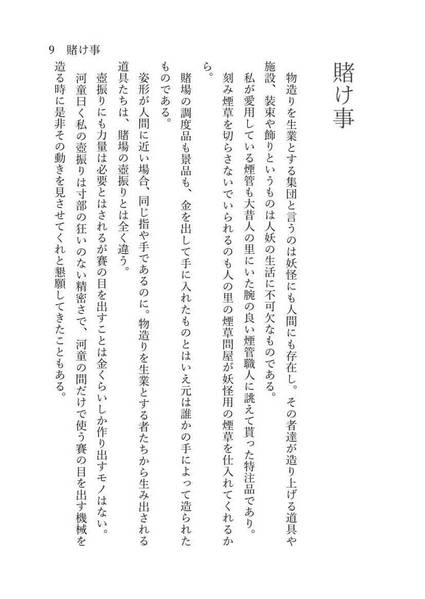 9 賭け事
賭け事
物造りを生業とする集団と言うのは妖怪にも人間にも存在し。その者達が造り上げる道具や
施設、装束や飾りというものは人妖の生活に不可欠なものである。
私が愛用している煙管も大昔人の里にいた腕の良い煙管職人に誂えて貰った特注品であり。
刻み煙草を切らさないでいられるのも人の里の煙草問屋が妖怪用の煙草を仕入れてくれるか
ら。
賭場の調度品も景品も、金を出して手に入れたものとはいえ元は誰かの手によって造られた
ものである。
姿形が人間に近い場合、同じ指や手であるのに。物造りを生業とする者たちから生み出される
道具たちは、賭場の壺振りとは全く違う。
壺振りにも力量は必要とはされるが賽の目を出すことは金くらいしか作り出すモノはない。
河童曰く私の壺振りは寸部の狂いのない精密さで、河童の間だけで使う賽の目を出す機械を
造る時に是非その動きを見させてくれと懇願してきたこともある。